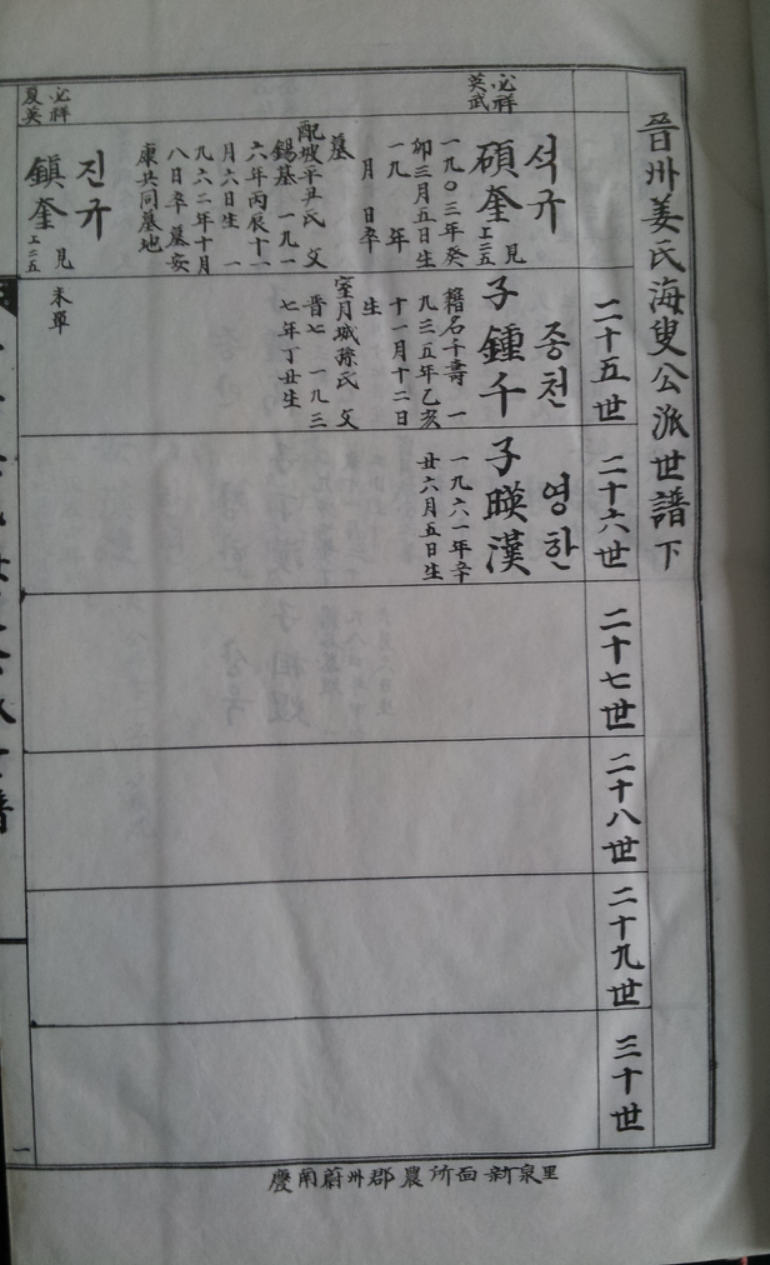 晉州姜氏海叟公派世譜下
二十五世
二十六世
二十七世
二十八世
二十九世
三十世
必祥
英武
석규
碩奎 見上二五
一九〇三年癸
卯三月五日生
一九 年
月 日卒
墓
配坡平尹氏 父
錫基 一九一
六年丙辰十一
月六日生 一
九六二年十月
八日卒 墓安
康共同墓地
必祥
夏英
진규
鎭奎 見上二五
未單
종천
子鍾千
籍名千壽 一
九三五年乙亥
十一月十二日
生
室月城孫氏 父
晋七 一九三
七年丁丑生
영한
子暎漢
一九六一年辛
丑六月五日生
一
慶南蔚州郡農所面新泉里